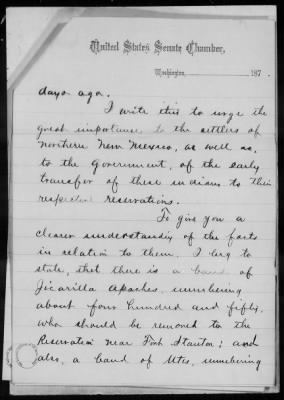 United States Senate Chamber,
Washington, 187 .
days ago.
I write this to urge the
great importance to the settlers of
Northern New Mexico, as well as,
to the Government, of the early
transfer of these indians to their
respective reservations.
To give you a
clearer understanding of the facts
in relation to them, I beg to
state, that there is a band of
Jicarilla Apaches, numbering
about four hundred and fifty,
who should be removed to the
Reservation near Fort Stanton; and
also, a band of Utes, numbering